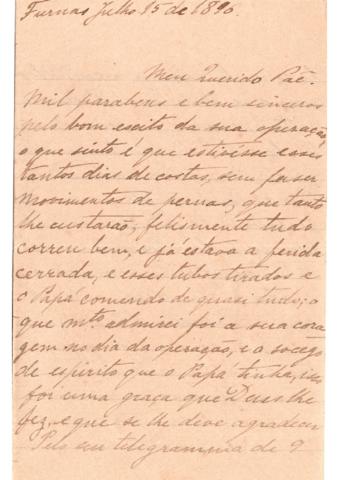 Furnas Julho 15 de 1890.
Meu Querido Pae.
Mil parabens e bem sinceros
pelo bom exito da sua operação,
o que sinto é que estivésse esses
tantos dias de costas, sem fazer
movimentos de pernas, que tanto
lhe custarão, felismente tudo
correu bem, e já estava a ferida
cerrada, e esses tubos tirados e
o Papá comendo de quasi tudo; o
que mto. admirei foi a sua cora
gem no dia da operação, e o socego
de espirito que o Papá tinha, isso
foi uma graça que Deus lhe
fez, e que se lhe deve agradecer
Pelo seu telegramma de 9